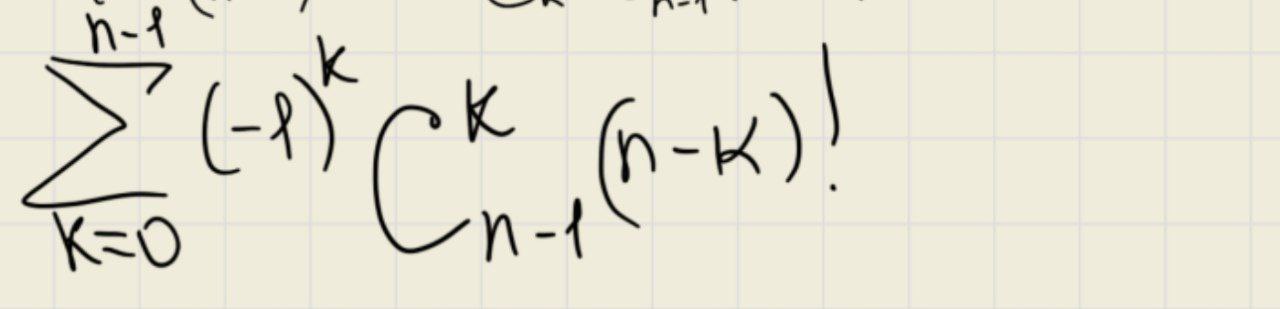 n-1
\sum_{k=0}^{n-1} (-1)^k C_{n-1}^k (n-k)!